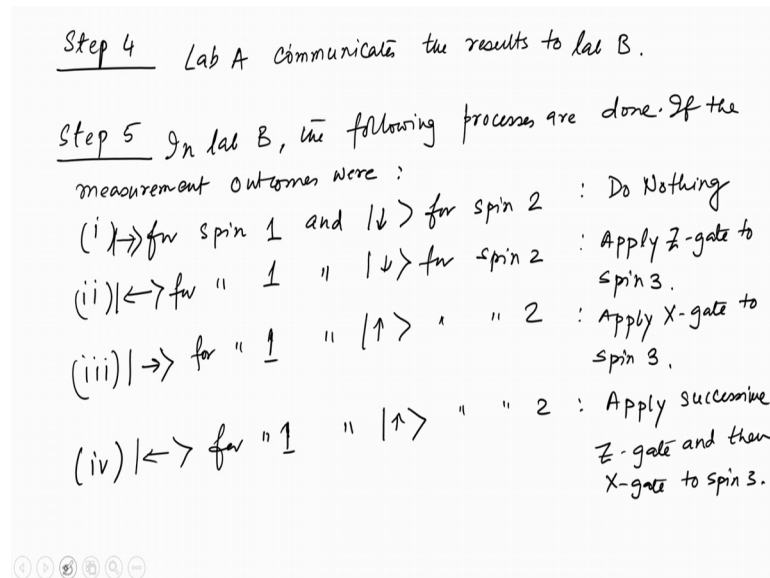 Step 4 Lab A communicates the results to lab B.
Step 5 In lab B, the following processes are done. If the
measurement outcomes were :
(i) |→> for spin 1 and |↓> for spin 2 : Do Nothing
(ii) |←> for " 1 " |↓> for spin 2 : Apply Z-gate to
spin 3.
(iii) |→> for " 1 " |↑> " " 2 : Apply X-gate to
spin 3.
(iv) |←> for " 1 " |↑> " " 2 : Apply successive
Z-gate and then
X-gate to spin 3.